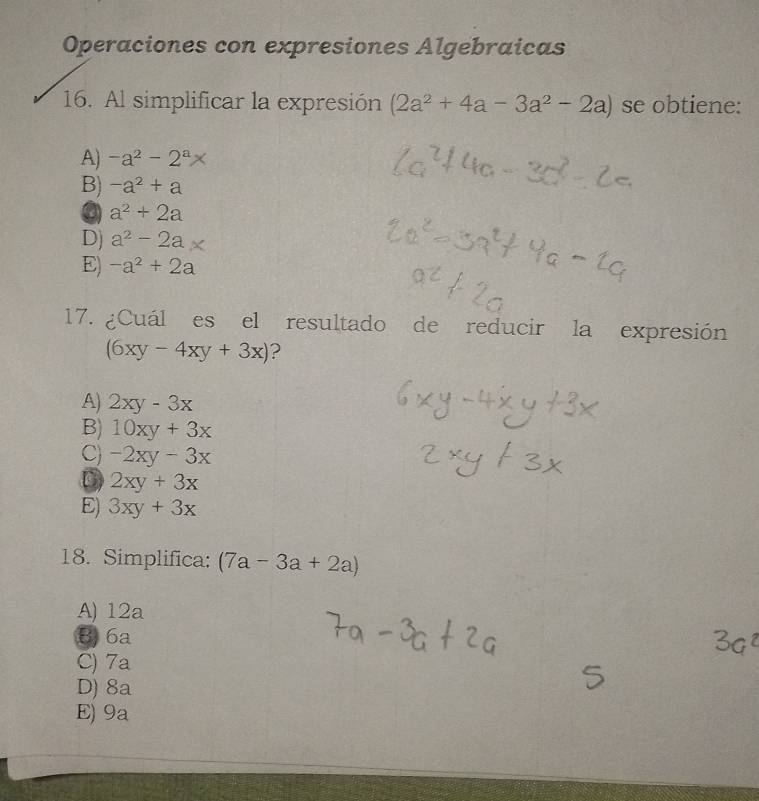 Operaciones con expresiones Algebraicas
16. Al simplificar la expresión (2a² + 4a - 3a² - 2a) se obtiene:
A) -a² - 2ᵃ x
2a² + 4a - 3a² - 2a
B) -a² + a
C) a² + 2a
D) a² - 2a x
2a² - 3a² + 4a - 2a
E) -a² + 2a
a² + 2a
17. ¿Cuál es el resultado de reducir la expresión
(6xy - 4xy + 3x)?
A) 2xy - 3x
6xy - 4xy + 3x
B) 10xy + 3x
C) -2xy - 3x
2xy + 3x
D) 2xy + 3x
E) 3xy + 3x
18. Simplifica: (7a - 3a + 2a)
A) 12a
7a - 3a + 2a
B) 6a
3a²
C) 7a
5
D) 8a
E) 9a